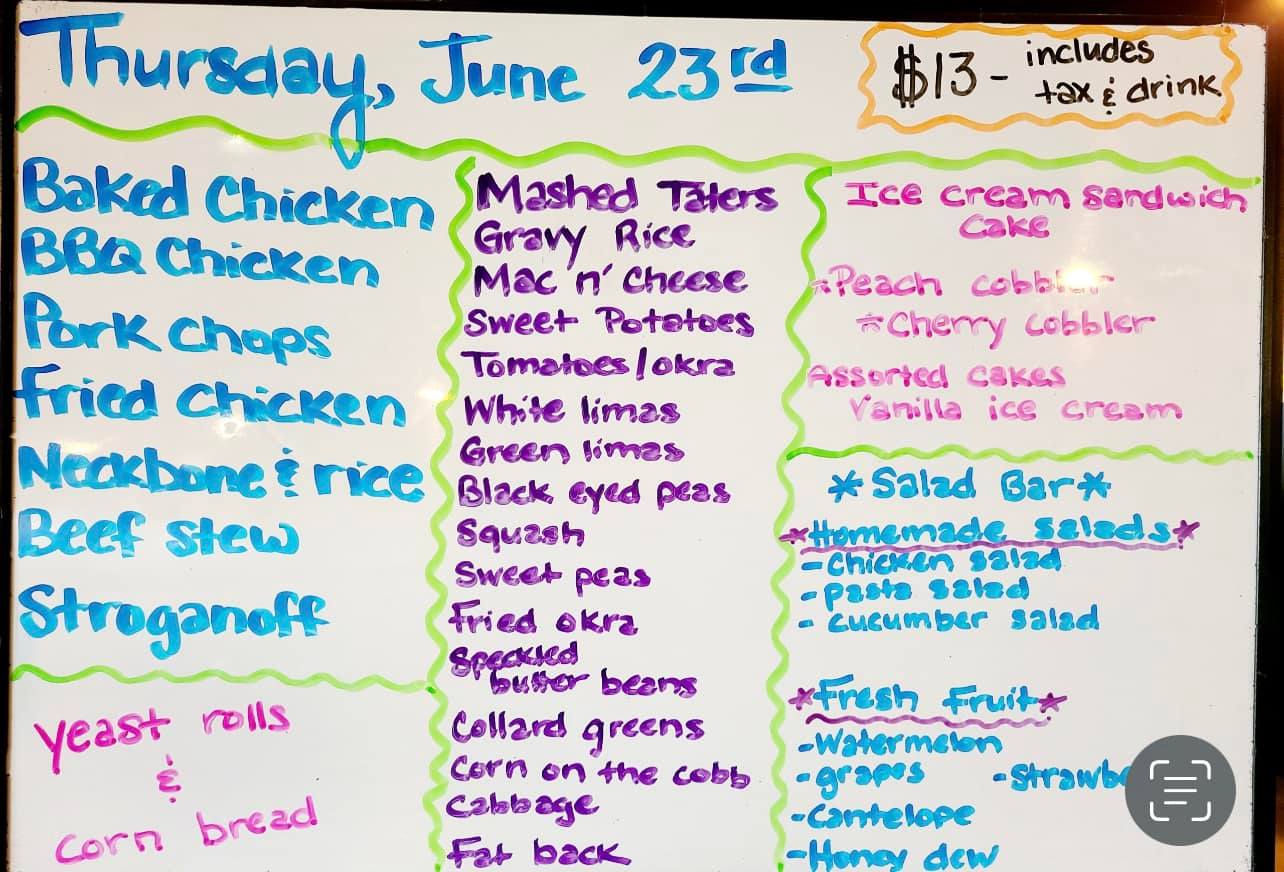 Thursday, June 23rd
$13 - includes
tax & drink
Baked Chicken
BBQ Chicken
Pork Chops
Fried Chicken
Neckbone & rice
Beef stew
Stroganoff
yeast rolls
&
corn bread
Mashed Taters
Gravy Rice
Mac 'n' Cheese
Sweet Potatoes
Tomatoes/okra
White limas
Green limas
Black eyed peas
Squash
Sweet peas
Fried okra
Speckled
butter beans
Collard greens
Corn on the cobb
Cabbage
Fat back
Ice cream sandwich
cake
*Peach cobbler
*Cherry cobbler
Assorted cakes
Vanilla ice cream
*Salad Bar*
*Homemade salads*
-Chicken salad
-pasta salad
- cucumber salad
*Fresh Fruit*
-Watermelon
-grapes
-Cantelope
-Honey dew